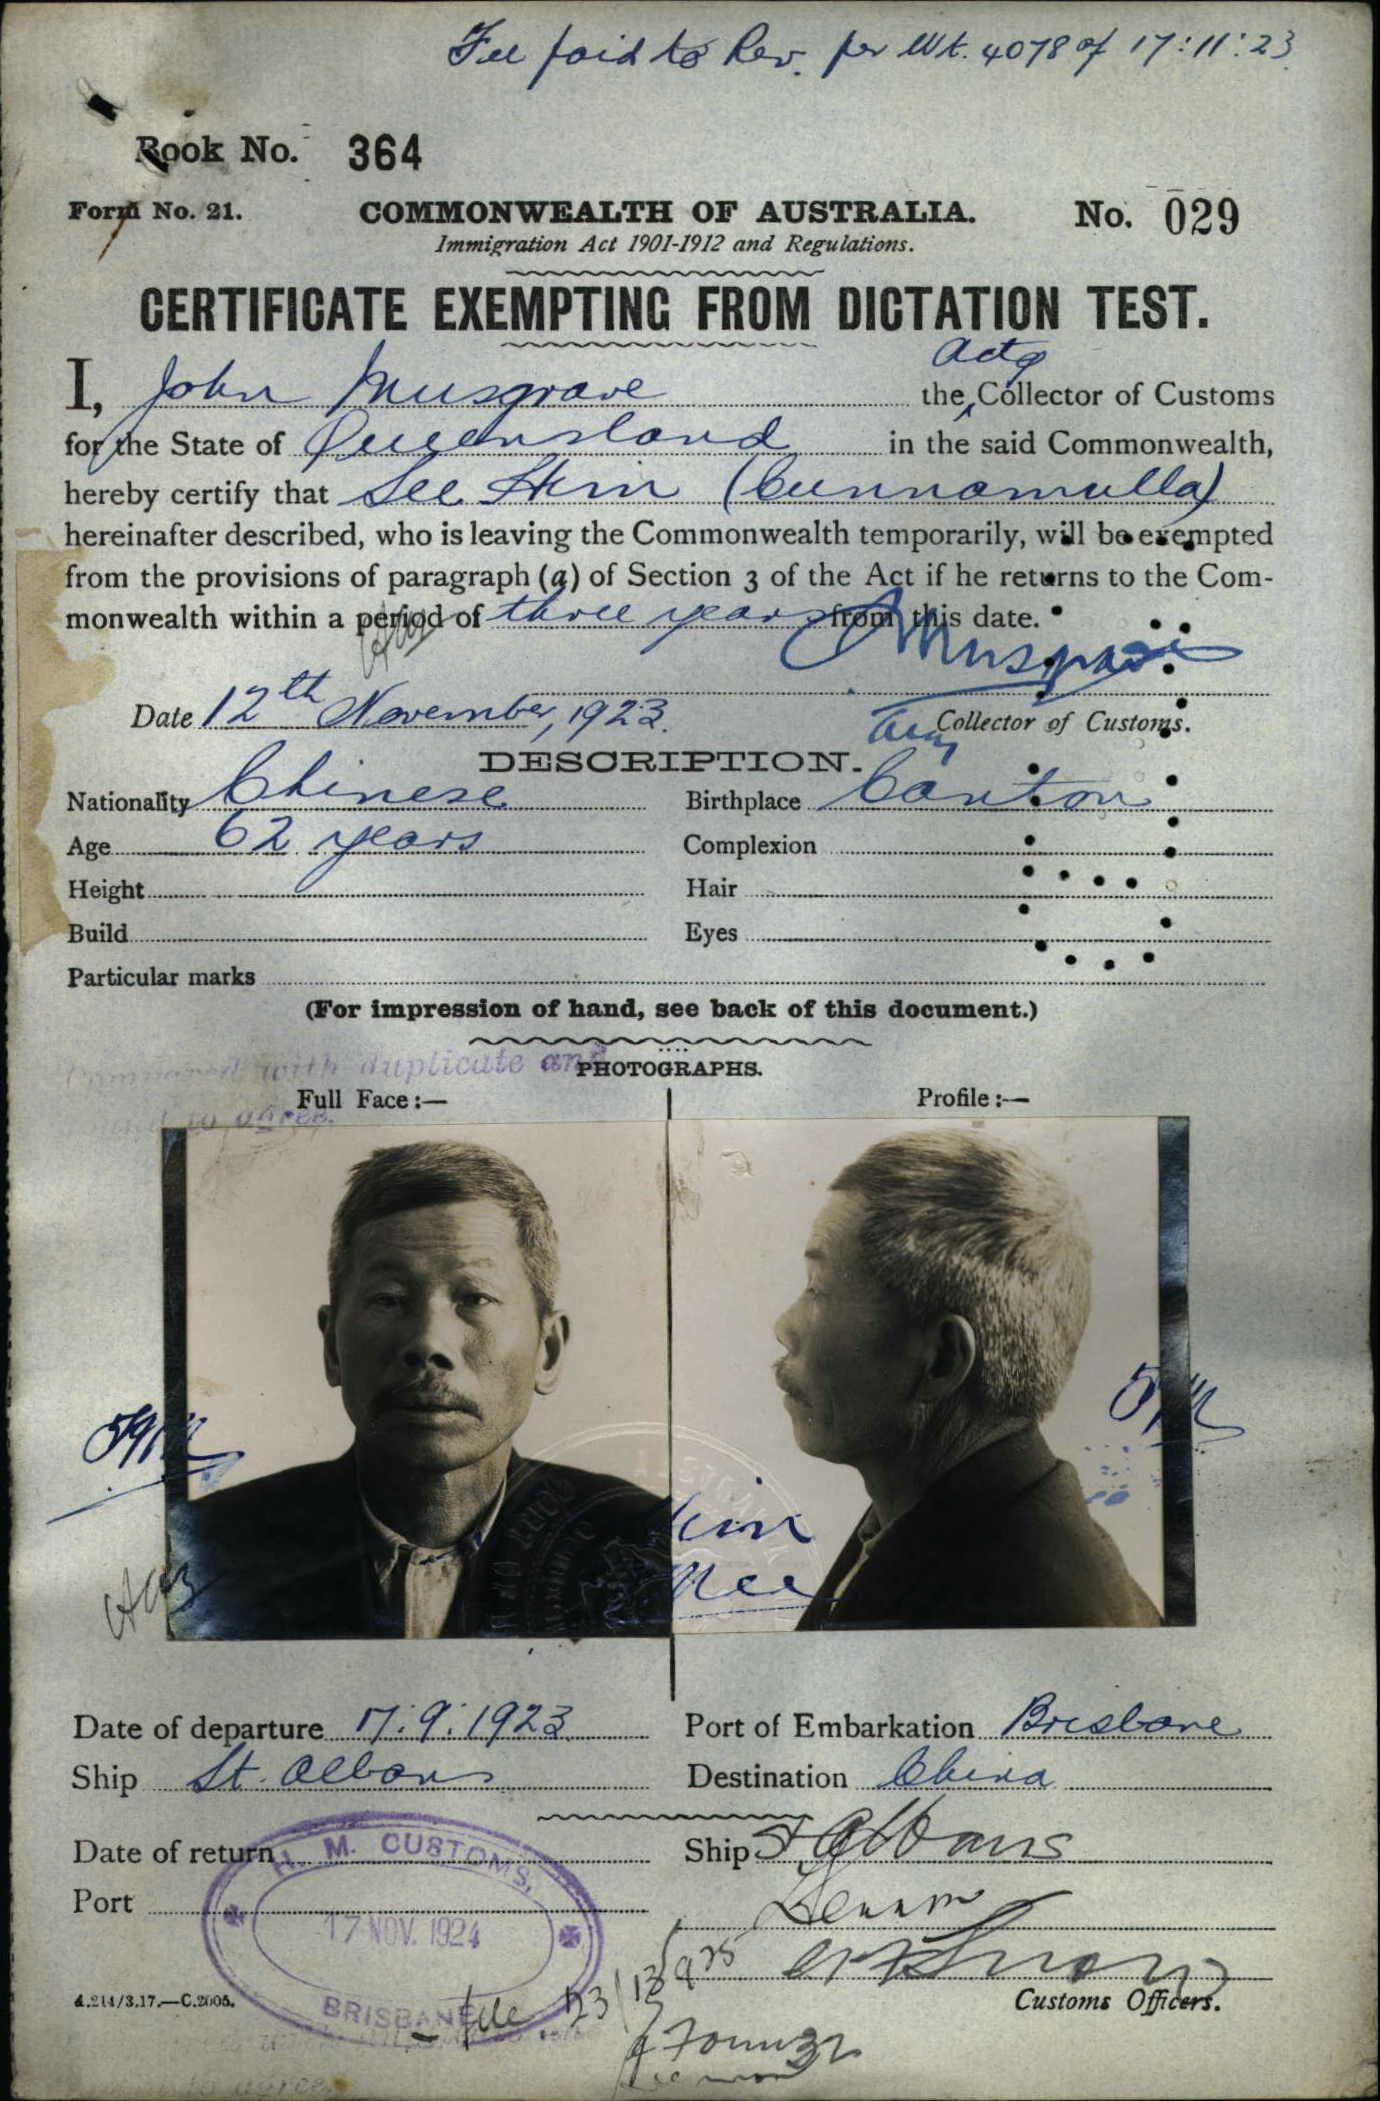 Fee paid to Rev. per Wt. 4078 of 17:11:23
Book No. 364
Form No. 21. COMMONWEALTH OF AUSTRALIA. No. 029
Immigration Act 1901-1912 and Regulations.
CERTIFICATE EXEMPTING FROM DICTATION TEST.
Actg
I, John Musgrave the Collector of Customs
for the State of Queensland in the said Commonwealth,
hereby certify that See Him (Cunnamulla)
hereinafter described, who is leaving the Commonwealth temporarily, will be exempted
from the provisions of paragraph (a) of Section 3 of the Act if he returns to the Com-
monwealth within a period of three years from this date.
Musgrave
Date 12th November, 1923. Collector of Customs.
DESCRIPTION.
Nationality Chinese Birthplace Canton
Age 62 years Complexion
Height Hair
Build Eyes
Particular marks
(For impression of hand, see back of this document.)
Compared with duplicate and
found to agree.
PHOTOGRAPHS.
Full Face:— Profile:—
Date of departure 17.9.1923 Port of Embarkation Brisbane
Ship St. Albans Destination China
Date of return Ship St Albans
Port
H. M. CUSTOMS,
17 NOV. 1924
BRISBANE
Customs Officers.
4.214/3.17.—C.2005.
file 23/13935